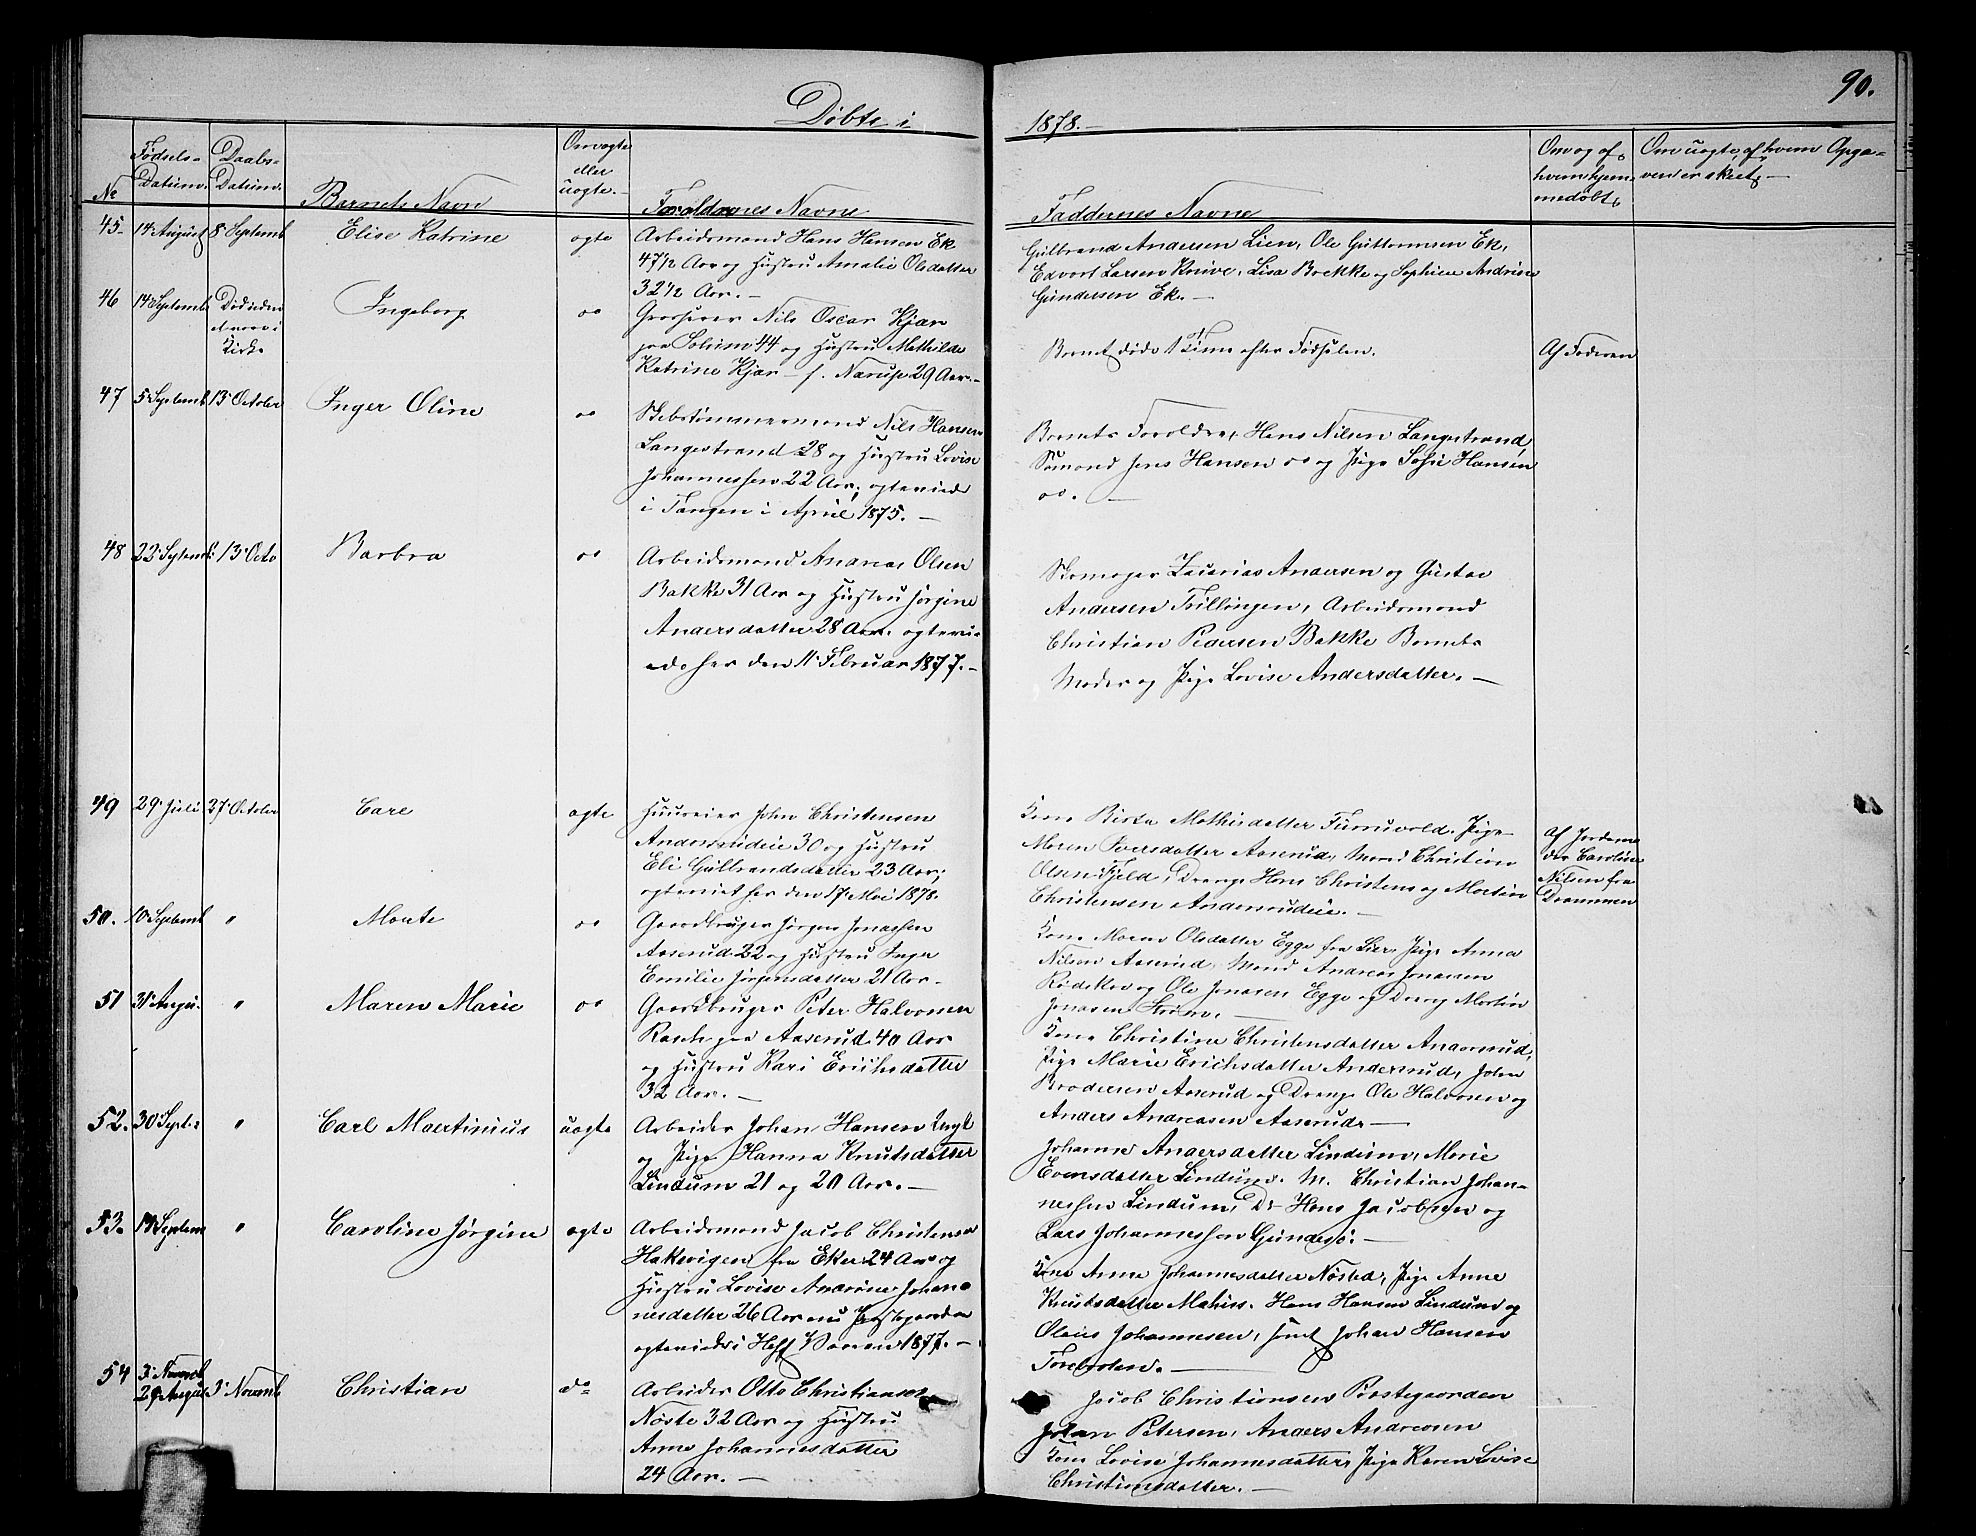 Døbte i 1878.
90.
No
Fødsels-
Datum.
Daabs-
Datum.
Barnets Navn
Om ægte
eller
uægte.
Forældrenes Navne
Faddernes Navne
Om og af
hvem hjem-
medøbt
Om uægte, af hvem Opga-
ven er skeet
45. 14 August 8 Septemb Elise Katrine ægte
Arbeidsmand Hans Hansen Ek
47½ Aar og Hustru Amalie Olsdatter
32½ Aar. —
Gulbrand Andersen Lien, Ole Guttormsen Ek,
Edvart Larsen Knive, Lisa Brekke og Sophie Andrine
Gundersen Ek. —
46 14 Septemb Ingeborg
Nils Oscar Kjær
paa Solum 44 og Hustru Mathilde
Katrine Kjær f. Narup 29 Aar. —
Barnet døde 1 Time efter Fødselen.
Af Faderen
47 5 Septemb 13 October Inger Oline
Skibstømmermand Nils Hansen
Langestrand 28 og Hustru Lovise
Johannessen 22 Aar, ægteviede
i Tangen i April 1875. —
Barnets Forældre, Hans Nilsen Langestrand,
Sømand Jens Hansen oo og Pige Sofie Hansen
oo. —
48 22 Septemb 13 Octo Barbra
Arbeidsmand Andreas Olsen
Bakke 31 Aar og Hustru Jørgine
Andersdatter 28 Aar. ægtevi-
ede her den 11 Februar 1877. —
Skomager Zacarias Andersen og Gustav
Andersen Tvillingen, Arbeidsmand
Christian Pedersen Bakke Barnets
Moder og Pige Lovise Andersdatter. —
49 29 Juli 27 October Carl ægte
John Christensen
30 og Hustru
Eli Gulbrandsdatter 23 Aar;
ægteviet her den 17 Mai 1878.
Kone Mathisdatter Furuvold. Pige
Maren Aaserud, Mand Christian
Olsen Fjeld, Dreng Hans Christens og Martin
Christensen
Af Jordemo
der Caroline
Nilsen fra
Drammen
50. 10 Septemb " Marte
Gaardbruger Jørgen Jonassen
Aaserud 22 og Hustru Inger
Emilie Jørgensdatter 21 Aar. —
Kone Maren Olsdatter Egge fra Lier, Pige Anna
Nilsen Aaserud, Mand Andreas Jonassen
Rødskov og Ole Jonasen Egge og Dreng Martin
Jonasen Strøm. —
51 31 Augu. " Maren Marie
Gaardbruger Peter Halvorsen
Rasch paa Aaserud 40 Aar
og Hustru Kari Erichsdatter
32 Aar. —
Kone Christine Christensdatter
Pige Marie Erichsdatter Anderrud, John
Brodersen Aaserud og Dreng Ole Halvorsen og
Anders Andreasen Aaserud —
52. 30 Sept. " Carl Martinius uægte
Arbeider Johan Hansen
og Pige Hanna Knutsdatter
Lindum 21 og 20 Aar. —
Johanne Andersdatter Lindum, Marie
Evensdatter Lindum. M. Christian Johan-
nessen Lindum, Dr Hans Jacobsen og
Lars Johannessen Gundesø. —
53. Septem " Caroline Jørgine ægte
Arbeidsmand Jacob Christensen
Hakavigen fra Eker 24 Aar og
Hustru Lovise Johan-
nesdatter 26 Aar nu Præstegaarden
ægteviede i 1877. —
Kone Anne Johannesdatter Nøsted, Pige Anne
Knutsdatter Hans Hansen Lindum og
Olaus Johannesen, samt Johan Hansen
54 3 Novemb
29 Augu 3 Novemb Christian do
Arbeider Otto Christiansen
Nøste 32 Aar og Hustru
Anne Johannesdatter
24 Aar. —
Jacob Christiansen Præstegaarden
Johan Petersen, Anders Andreasen
Kone Lovise Johannesdatter, Pige Karen Lovise
Christiansdatter. —